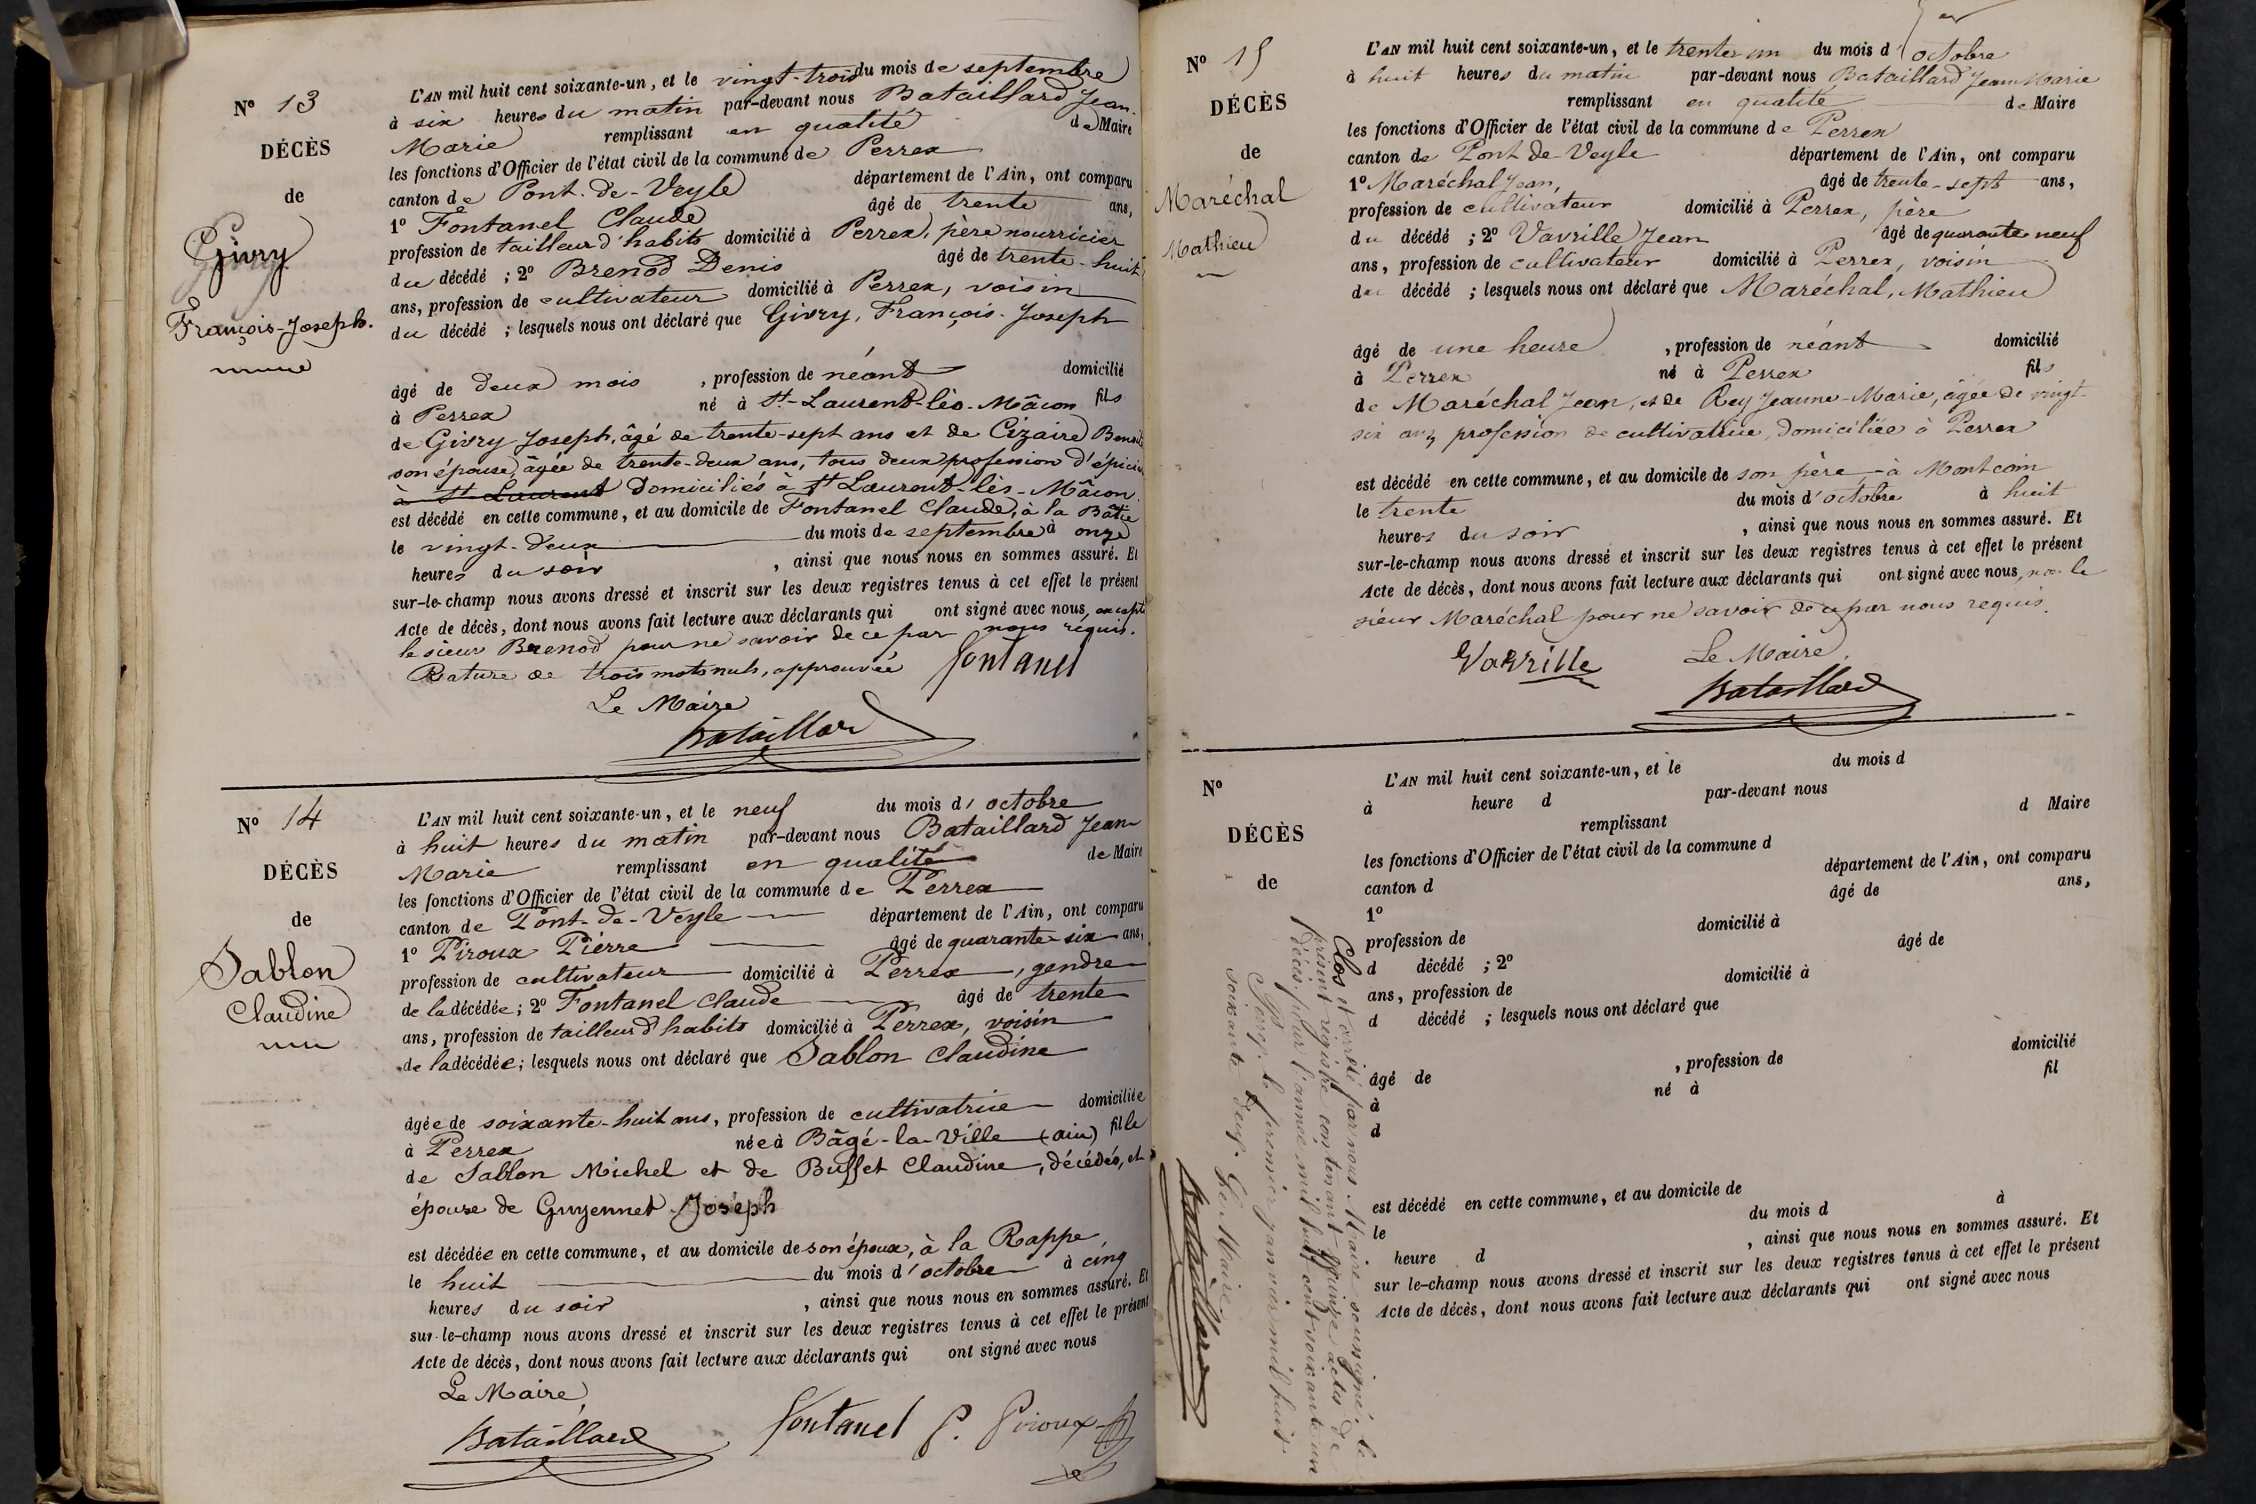 Nº 13
DÉCÈS
de
Givry
François-Joseph.
L'AN mil huit cent soixante-un, et le vingt-trois du mois de septembre
à six heures du matin par-devant nous Bataillard Jean-
Marie remplissant en qualité de Maire
les fonctions d'Officier de l'état civil de la commune de Perrex
canton de Pont-de-Veyle département de l'Ain, ont comparu
1º Fontanel Claude âgé de trente ans,
profession de tailleur d'habits domicilié à Perrex, père nourricier
du décédé ; 2º Brenod Denis âgé de trente-huit
ans, profession de cultivateur domicilié à Perrex, voisin
du décédé ; lesquels nous ont déclaré que Givry, François-Joseph
âgé de deux mois , profession de néant domicilié
à Perrex né à St-Laurent-lès-Mâcon fils
de Givry Joseph, âgé de trente-sept ans et de Cizaire Benoite
son épouse, âgée de trente-deux ans, tous deux profession d'épicier
à St Laurent domiciliés à St Laurent-lès-Mâcon.
est décédé en cette commune, et au domicile de Fontanel Claude, à la Bâtie
le vingt-deux du mois de septembre à onze
heures du soir , ainsi que nous nous en sommes assuré. Et
sur-le-champ nous avons dressé et inscrit sur les deux registres tenus à cet effet le présent
Acte de décès, dont nous avons fait lecture aux déclarants qui ont signé avec nous, excepté
le sieur Brenod pour ne savoir de ce par nous requis.
Rature de trois mots nuls, approuvée Fontanel
Le Maire
Bataillard
Nº 14
DÉCÈS
de
Sablon
Claudine
L'AN mil huit cent soixante-un, et le neuf du mois d'octobre
à huit heures du matin par-devant nous Bataillard Jean-
Marie remplissant en qualité de Maire
les fonctions d'Officier de l'état civil de la commune de Perrex
canton de Pont-de-Veyle département de l'Ain, ont comparu
1º Piroux Pierre âgé de quarante-six ans,
profession de cultivateur domicilié à Perrex, gendre
de la décédée ; 2º Fontanel Claude âgé de trente
ans, profession de tailleur d'habits domicilié à Perrex, voisin
de la décédée ; lesquels nous ont déclaré que Sablon Claudine
âgée de soixante-huit ans, profession de cultivatrice domiciliée
à Perrex née à Bâgé-la-Ville (ain) fille
de Sablon Michel et de Buffet Claudine, décédés, et
épouse de Guyennet Joseph
est décédée en cette commune, et au domicile de son époux, à la Rappe
le huit du mois d'octobre à cinq
heures du soir , ainsi que nous nous en sommes assuré. Et
sur-le-champ nous avons dressé et inscrit sur les deux registres tenus à cet effet le présent
Acte de décès, dont nous avons fait lecture aux déclarants qui ont signé avec nous
Le Maire,
Bataillard Fontanel P. Piroux
Nº 15
DÉCÈS
de
Maréchal
Mathieu
L'AN mil huit cent soixante-un, et le trente-un du mois d'octobre
à huit heures du matin par-devant nous Bataillard Jean Marie
remplissant en qualité de Maire
les fonctions d'Officier de l'état civil de la commune de Perrex
canton de Pont-de-Veyle département de l'Ain, ont comparu
1º Maréchal Jean, âgé de trente-sept ans,
profession de cultivateur domicilié à Perrex, père
du décédé ; 2º Vavrille Jean âgé de quarante neuf
ans, profession de cultivateur domicilié à Perrex, voisin
du décédé ; lesquels nous ont déclaré que Maréchal, Mathieu
âgé de une heure , profession de néant domicilié
à Perrex né à Perrex fils
de Maréchal Jean, et de Rey Jeanne-Marie, âgée de vingt-
six ans, profession de cultivatrice, domiciliée à Perrex
est décédé en cette commune, et au domicile de son père, à Montcoin
le trente du mois d'octobre à huit
heures du soir , ainsi que nous nous en sommes assuré. Et
sur-le-champ nous avons dressé et inscrit sur les deux registres tenus à cet effet le présent
Acte de décès, dont nous avons fait lecture aux déclarants qui ont signé avec nous, non le
sieur Maréchal pour ne savoir de ce par nous requis.
Vavrille Le Maire,
Bataillard
Nº
DÉCÈS
de
L'AN mil huit cent soixante-un, et le du mois d
à heure d par-devant nous
remplissant d Maire
les fonctions d'Officier de l'état civil de la commune d
canton d département de l'Ain, ont comparu
1º âgé de ans,
profession de domicilié à
d décédé ; 2º âgé de
ans, profession de domicilié à
d décédé ; lesquels nous ont déclaré que
âgé de , profession de domicilié
à né à fil
d
est décédé en cette commune, et au domicile de
le du mois d à
heure d , ainsi que nous nous en sommes assuré. Et
sur le-champ nous avons dressé et inscrit sur les deux registres tenus à cet effet le présent
Acte de décès, dont nous avons fait lecture aux déclarants qui ont signé avec nous
Clos et arrêté par nous Maire soussigné, le
présent registre contenant quinze actes de
décès, pour l'année mil huit cent soixante un
à Perrex, le premier janvier mil huit
soixante deux. Le Maire,
Bataillard